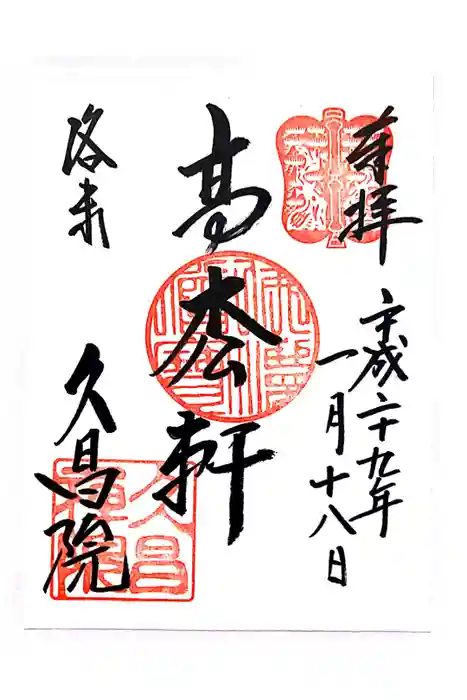 奉拝
平成二十九年
一月十八日
高枩軒
洛東
久昌院